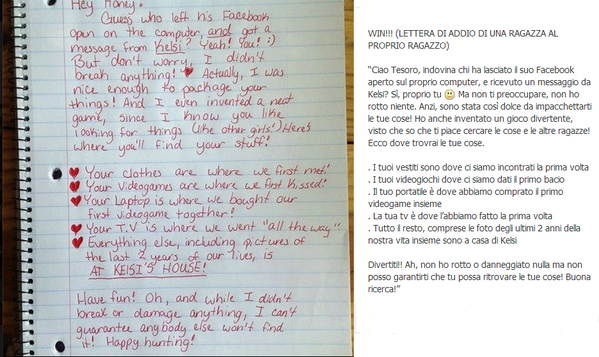 Hey Honey!
Guess who left his Facebook
open on the computer, and got a
message from Kelsi? Yeah! You! :)
But don't worry, I didn't
break anything! ♥ Actually, I was
nice enough to package your
things! And I even invented a neat
game, since I know you like
looking for things (like other girls!) Here's
where you'll find your stuff!
♥ Your clothes are where we first met!
♥ Your Videogames are where we first kissed!
♥ Your Laptop is where we bought our
first videogame together!
♥ Your T.V is where we went "all the way"
♥ Everything else, including pictures of
the last 2 years of our lives, is
AT KELSI'S HOUSE!
Have fun! Oh, and while I didn't
break or damage anything, I can't
guarantee anybody else won't find
it! Happy hunting!
WIN!!! (LETTERA DI ADDIO DI UNA RAGAZZA AL
PROPRIO RAGAZZO)
"Ciao Tesoro, indovina chi ha lasciato il suo Facebook
aperto sul proprio computer, e ricevuto un messaggio da
Kelsi? Sì, proprio tu 🙂 Ma non ti preoccupare, non ho
rotto niente. Anzi, sono stata così dolce da impacchettarti
le tue cose! Ho anche inventato un gioco divertente,
visto che so che ti piace cercare le cose e le altre ragazze!
Ecco dove trovarai le tue cose.
. I tuoi vestiti sono dove ci siamo incontrati la prima volta
. I tuoi videogiochi dove ci siamo dati il primo bacio
. Il tuo portatile è dove abbiamo comprato il primo
videogame insieme
. La tua tv è dove l'abbiamo fatto la prima volta
. Tutto il resto, comprese le foto degli ultimi 2 anni della
nostra vita insieme sono a casa di Kelsi
Divertiti!! Ah, non ho rotto o danneggiato nulla ma non
posso garantirti che tu possa ritrovare le tue cose! Buona
ricerca!"